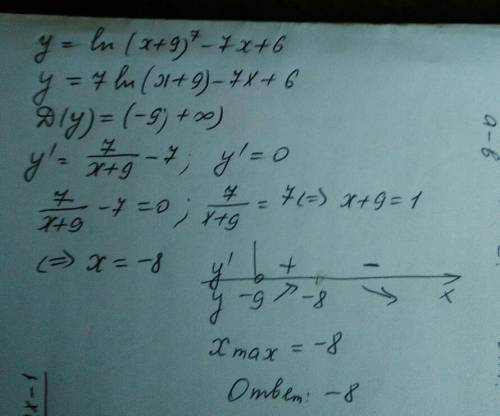 y = ln (x+9)⁷ - 7x + 6
y = 7 ln (x+9) - 7x + 6
D(y) = (-9; +∞)
y' = 7/(x+9) - 7; y' = 0
7/(x+9) - 7 = 0; 7/(x+9) = 7 (=> x+9 = 1
(=> x = -8
y' + -
y -9 ↗ -8 ↘ x
x max = -8
Ответ: -8
a-b
x=1